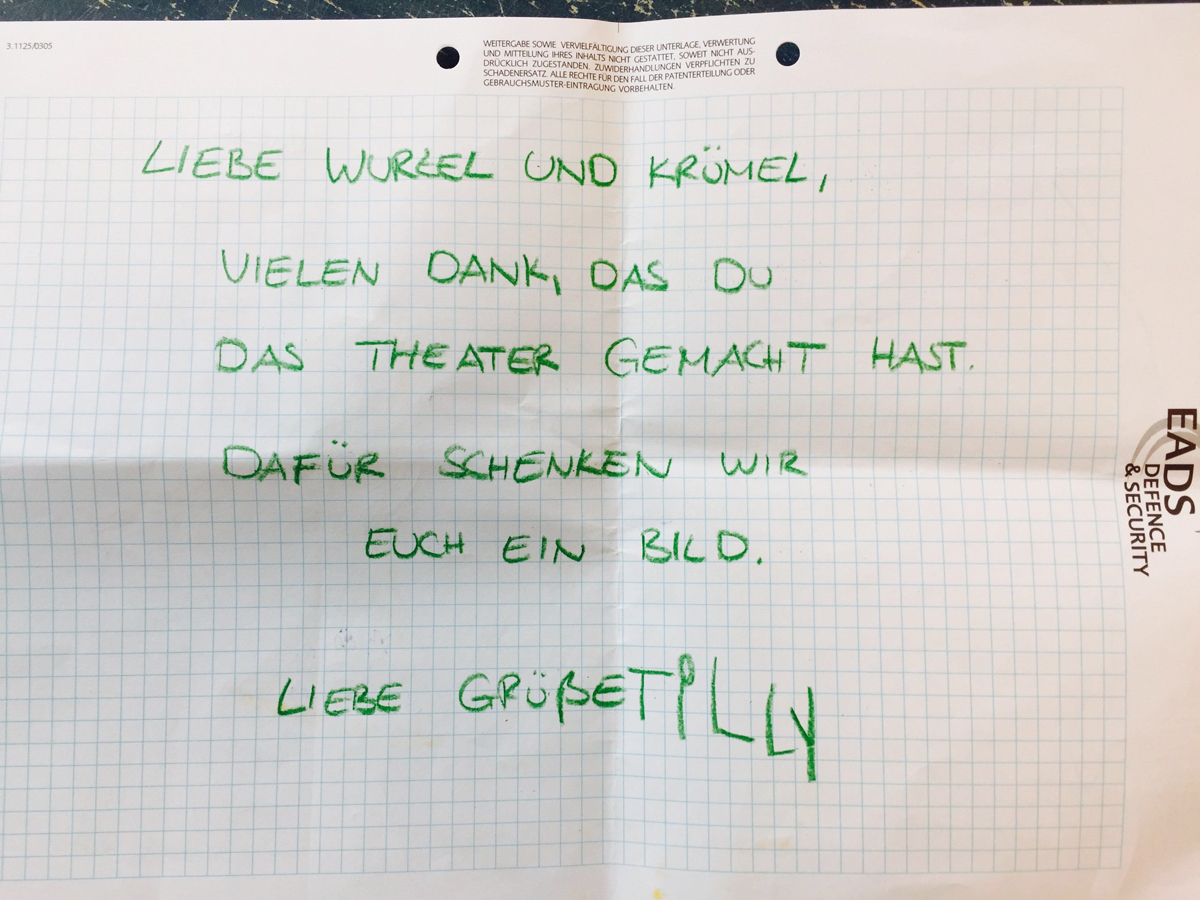 3.1125/0305
WEITERGABE SOWIE VERVIELFÄLTIGUNG DIESER UNTERLAGE, VERWERTUNG
UND MITTEILUNG IHRES INHALTS NICHT GESTATTET, SOWEIT NICHT AUS-
DRÜCKLICH ZUGESTANDEN. ZUWIDERHANDLUNGEN VERPFLICHTEN ZU
SCHADENERSATZ. ALLE RECHTE FÜR DEN FALL DER PATENTERTEILUNG ODER
GEBRAUCHSMUSTER-EINTRAGUNG VORBEHALTEN.
LIEBE WURZEL UND KRÜMEL,
VIELEN DANK, DAS DU
DAS THEATER GEMACHT HAST.
DAFÜR SCHENKEN WIR
EUCH EIN BILD.
LIEBE GRÜßE TILLY
EADS
DEFENCE
& SECURITY